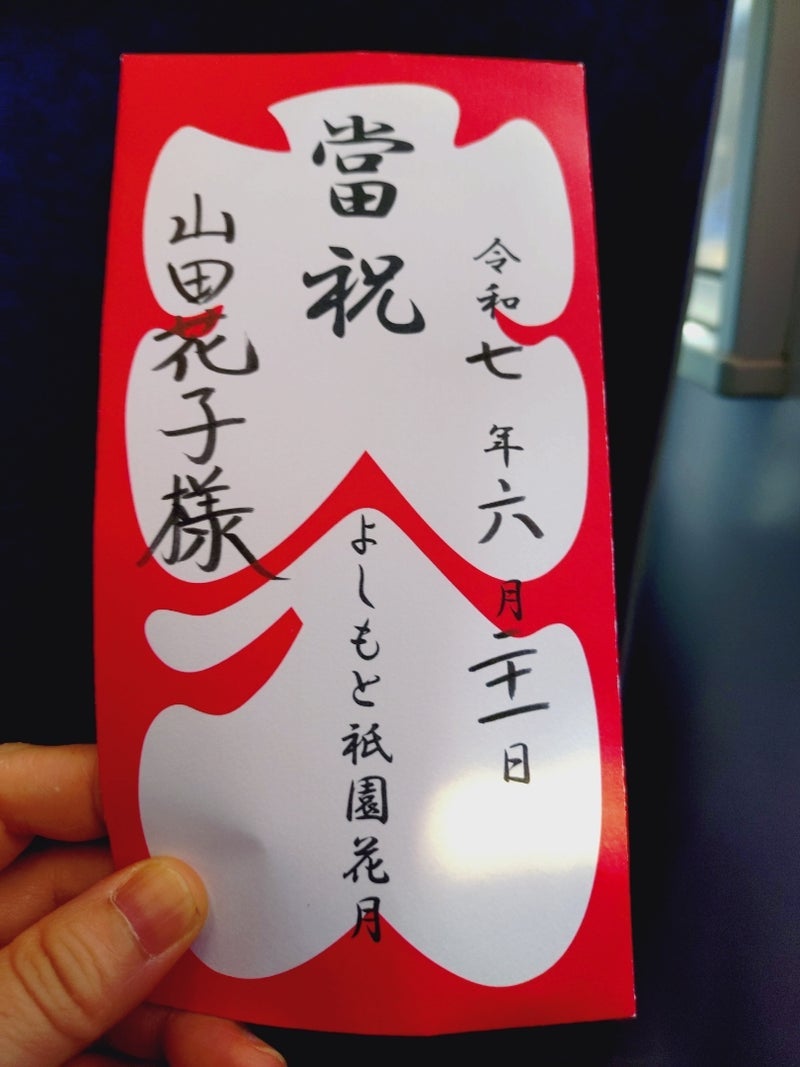 令和七年六月二十一日
當祝
よしもと祇園花月
山田花子様